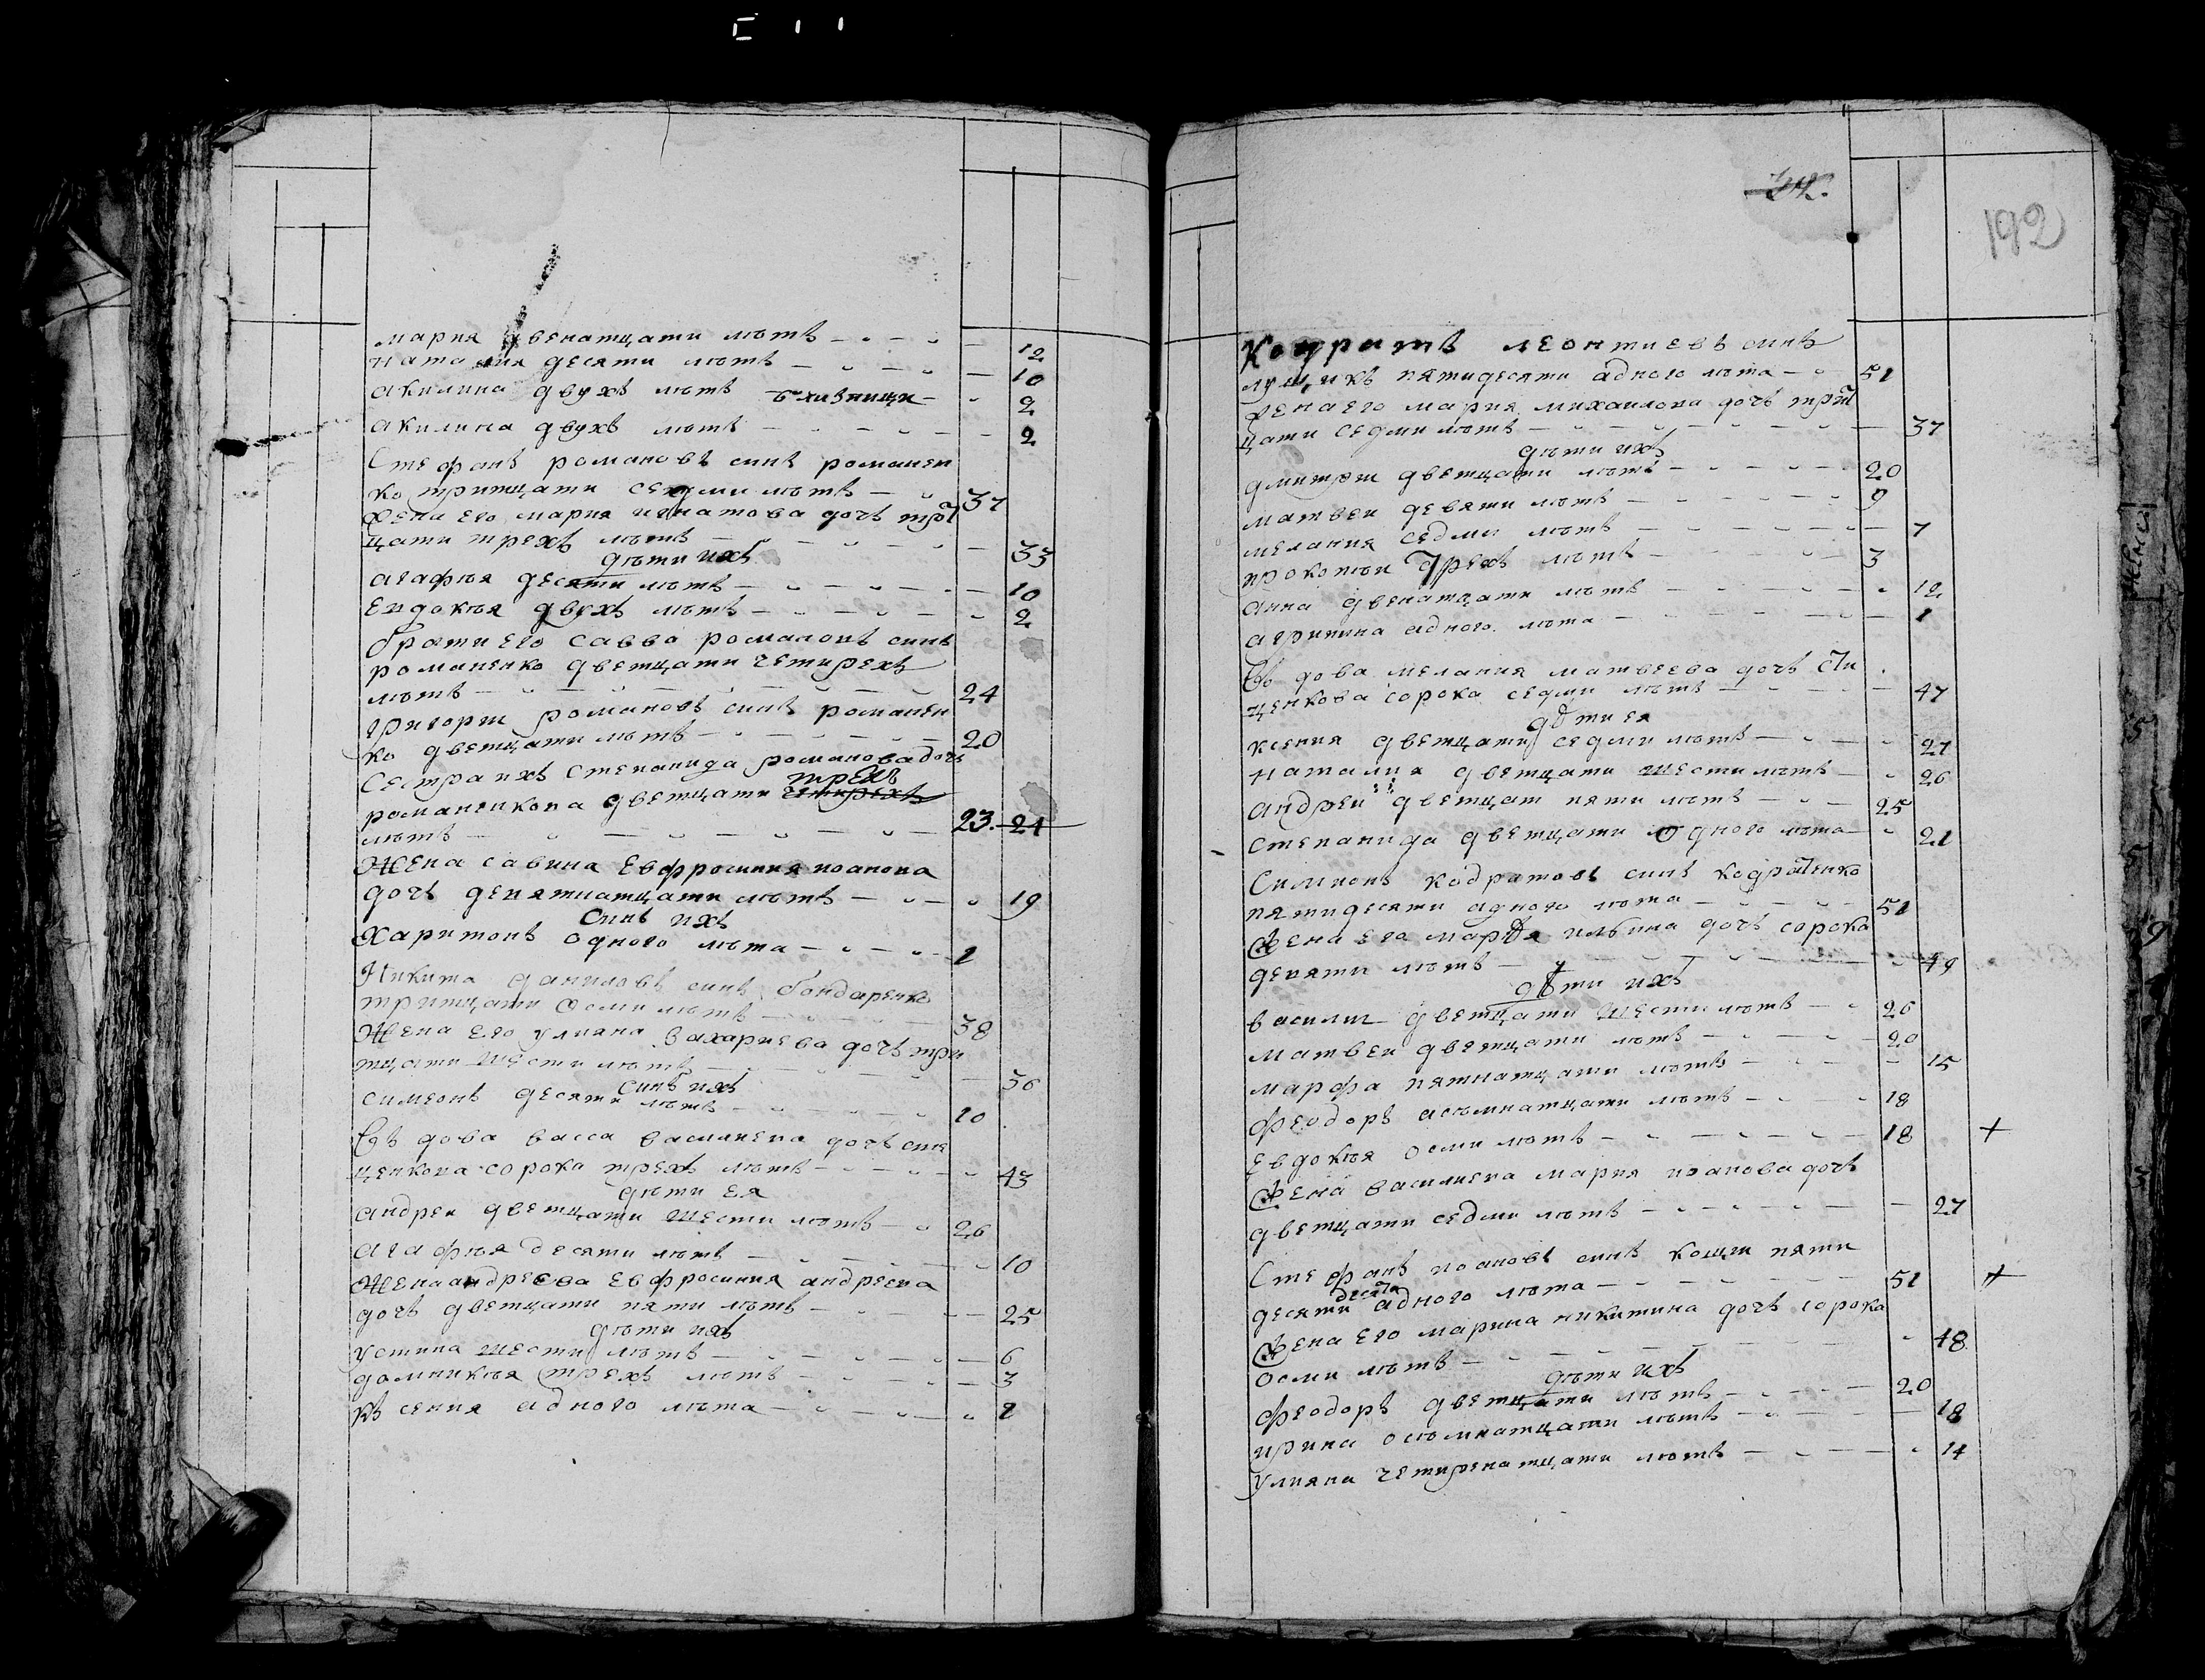 мария двенатцати лѣтъ 12
наталия десяти лѣтъ 10
акилина двухъ лѣтъ близници 2
акилина двухъ лѣтъ 2
Стефанъ романовъ синъ романен
ко тритцати седми лѣтъ 37
Жена его мария игнатова дочъ трит
цати трехъ лѣтъ 33
дѣти ихъ
агафѣя десяти лѣтъ 10
Евдокѣя двухъ лѣтъ 2
братъ его савва романовъ синъ
романенко дветцати четирехъ
лѣтъ 24
григорги романовъ синъ романен
ко дветцати лѣтъ 20
Сестра ихъ степанида романова дочъ
трехъ
романенкова дветцати четирехъ
лѣтъ 23. 24
Жена савина Евфросиния иоанова
дочъ девятнатцати лѣтъ 19
Синъ ихъ
Харитонъ одного лѣта 1
Никита даниловъ синъ бондаренко
тритцати осми лѣтъ 38
Жена Его улияна захариева дочъ три
тцати шести лѣтъ 36
Синъ ихъ
симеонъ десяти лѣтъ 10
Въдова васса василиева дочъ сте
ценкова сорока трехъ лѣтъ 43
дѣти ея
андреи дветцати шести лѣтъ 26
агафѣя десяти лѣтъ 10
Жена андреева Евфросиния андреева
дочъ дветцати пяти лѣтъ 25
дѣти ихъ
устина шести лѣтъ 6
домникѣя трехъ лѣтъ 3
Ксения адного лѣта 1
192
Кодратъ леонтиевъ синъ
лущикъ пятидесяти адного лѣта 51
Жена его мария михаилова дочъ трит
цати седми лѣтъ 37
дѣти ихъ
дмитрги дветцати лѣтъ 20
матвеи девяти лѣтъ 9
мелания седми лѣтъ 7
прокопѣи трехъ лѣтъ 3
анна двенатцати лѣтъ 12
агрипина адного лѣта 1
Въдова мелания матвеева дочъ сти
ценкова сорока седми лѣтъ 47
дѣти ея
ксения дветцати седми лѣтъ 27
наталия дветцати шести лѣтъ 26
андреи дветцат пяти лѣтъ 25
степанида дветцати одного лѣта 21
Симионъ кодратовъ синъ кодратенко
пятидесяти адного лѣта 51
Жена его марфа илѣина дочъ сорока
девяти лѣтъ 49
дѣти ихъ
василги дветцати шести лѣтъ 26
матвеи дветцати лѣтъ 20
марфа пятнатцати лѣтъ 15
феодоръ асѣмнатцати лѣтъ 18
Евдокѣя осми лѣтъ 18 +
Жена василиева мария иоанова дочъ
дветцати седми лѣтъ 27
Стефанъ иоановъ синъ кощги пяти
десята
десяти адного лѣта 51 +
Жена его марина никитина дочъ сорока
осми лѣтъ 48
дѣти ихъ
феодоръ дветцати лѣтъ 20
ирина осѣмнатцати лѣтъ 18
Улияна четиренатцати лѣтъ 14